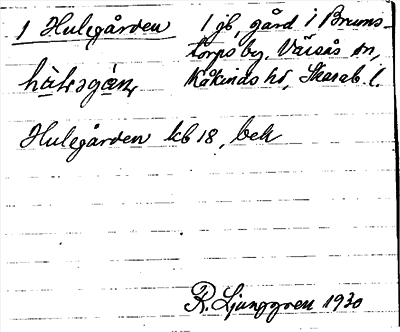 1 Hulegården
1 gb, gård i Bruns-
torps by, Värsås sn,
Kåkinds hd, Skarab. l.
Hulegården kb 18, bek
R. Ljunggren 1930